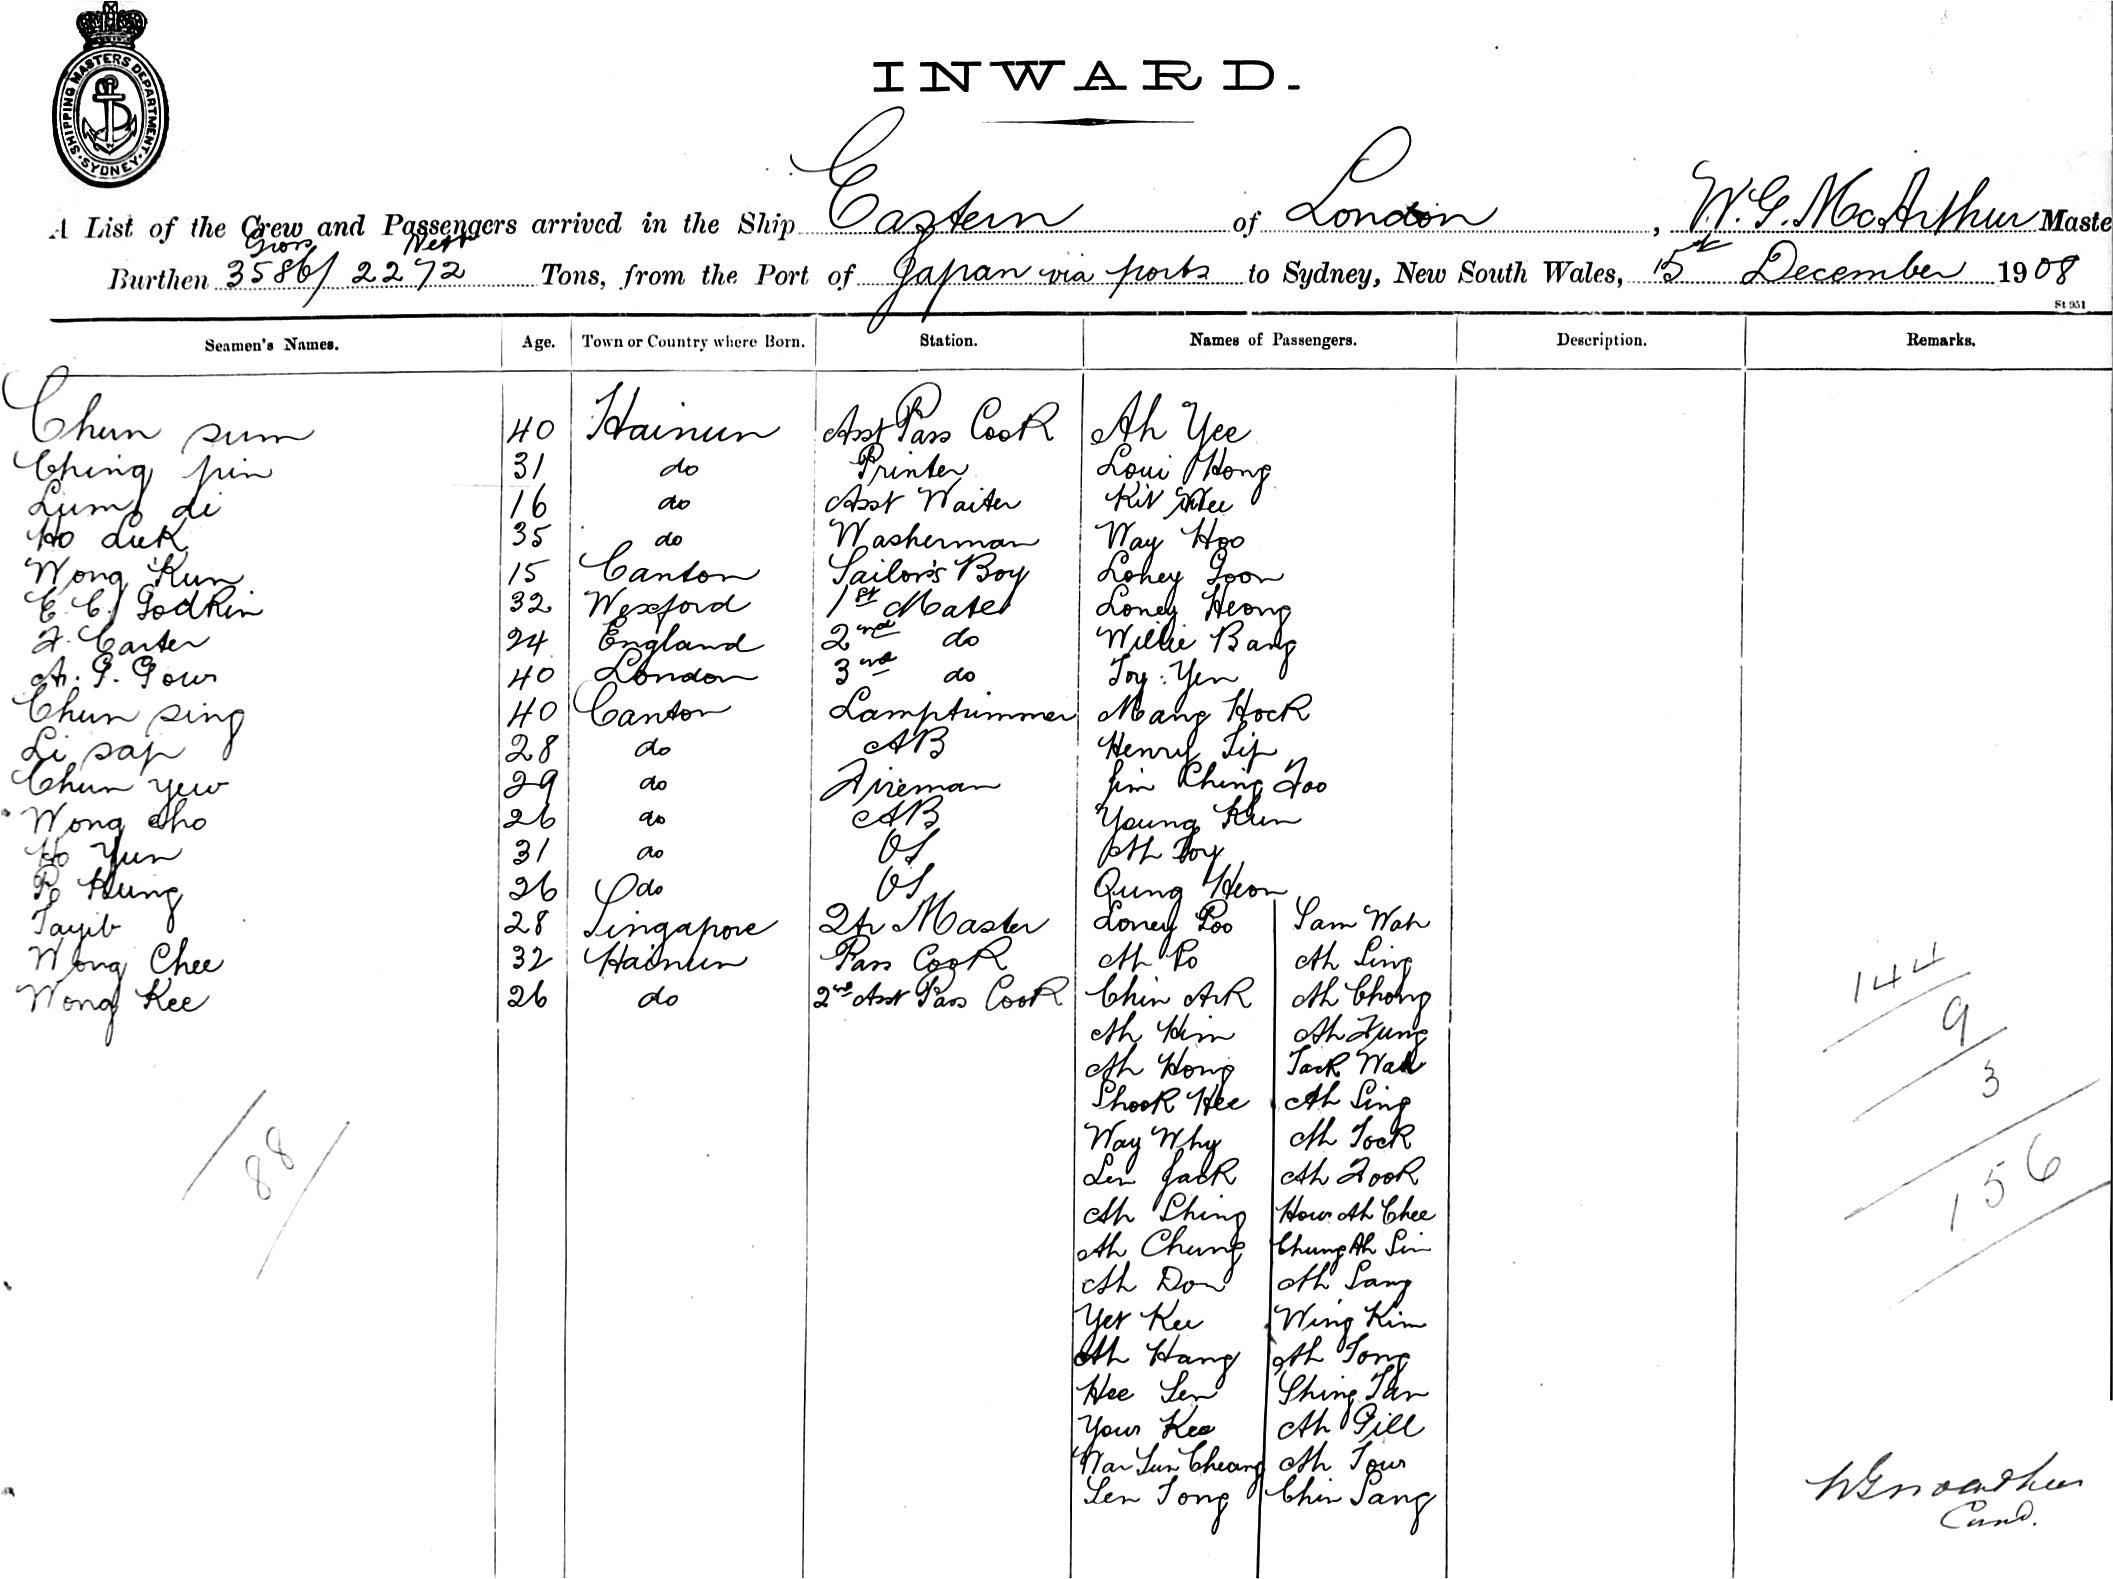 SHIPPING MASTERS DEPARTMENT. SYDNEY.
INWARD.
A List of the Crew and Passengers arrived in the Ship Eastern of London, W. G. McArthur Maste
Gross Nett
Burthen 3586/2272 Tons, from the Port of Japan via ports to Sydney, New South Wales, 5th December 1908
St 951
Seamen's Names. Age. Town or Country where Born. Station. Names of Passengers. Description. Remarks.
Chun sum 40 Hainun Asst Pass Cook Ah Yee
Ching pin 31 do Printer Loui Hong
Lum di 16 do Asst Waiter Kit
Ho Luk 35 do Washerman Way Hoo
Wong Kun 15 Canton Sailor's Boy Lohey Goon
E. C. Godkin 32 Wexford 1st Mate Loney Heong
F. Carter 24 England 2nd do Willie Bang
A. G. Gow 40 London 3rd do Toy Yen
Chun sing 40 Canton Lamptrimmer Mang Hock
Li sap 28 do AB Henry Sip
Chun yew 29 do Fireman Jim Ching Foo
Wong cho 26 do AB Young Kun
Ho Yun 31 do OS Ah Toy
Po Hung 26 do OS Qung Heon
Tayib 28 Singapore Qtr Master Loney Poo Sam Wah
Wong Chee 32 Hainun Pass Cook Ah Po Ah Sing
Wong Kee 26 do 2nd Asst Pass Cook Chin Ark Ah Chong
Ah Him Ah Fung
Ah Hong Jack Wah
Shook Hee Ah Sing
Way Why Ah Tock
Len Jack Ah Fook
Ah Shing How Ah Chee
Ah Chung Chung Ah Sin
Ah Don Ah Sang
Yet Kee Wing Kim
Ah Hang Ah Tong
Hee Sen Shing Tan
Yow Kee Ah Gill
War Sun Cheang Ah Tow
Sen Tong Chin Sang
88
144
9
3
156
W G McArthur
Comd.